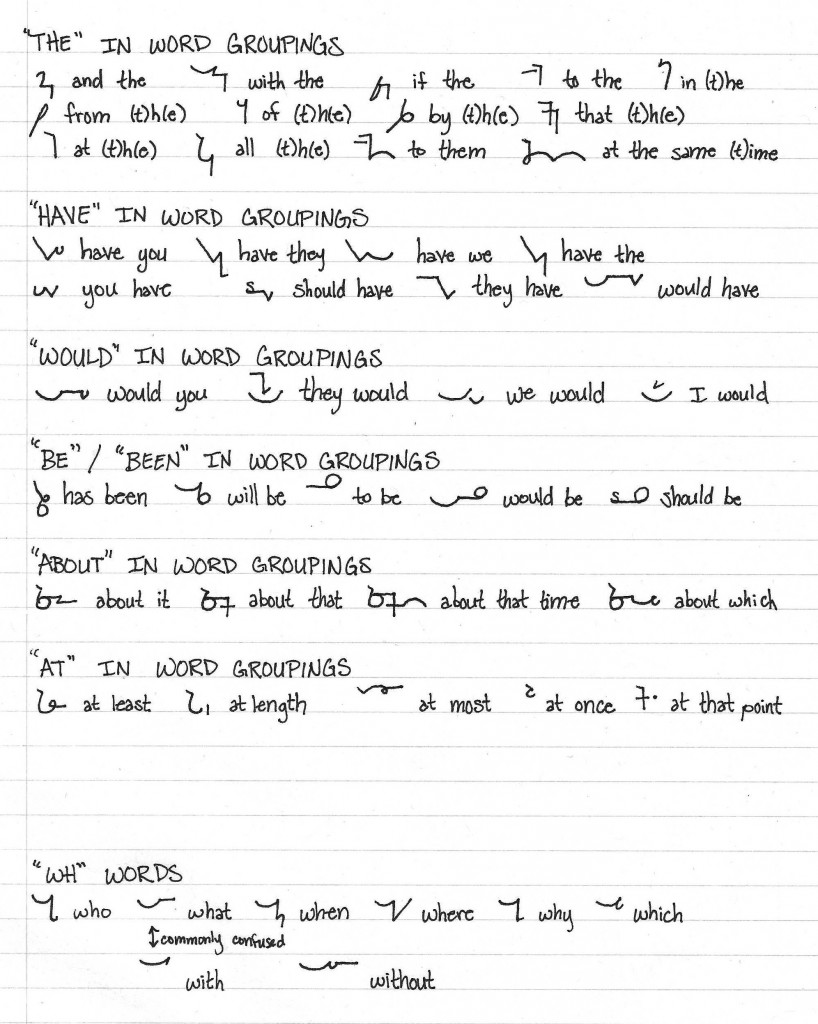 "THE" IN WORD GROUPINGS
and the with the if the to the in (t)he
from (t)h(e) of (t)h(e) by (t)h(e) that (t)h(e)
at (t)h(e) all (t)h(e) to them at the same (t)ime
"HAVE" IN WORD GROUPINGS
have you have they have we have the
you have should have they have would have
"WOULD" IN WORD GROUPINGS
would you they would we would I would
"BE" / "BEEN" IN WORD GROUPINGS
has been will be to be would be should be
"ABOUT" IN WORD GROUPINGS
about it about that about that time about which
"AT" IN WORD GROUPINGS
at least at length at most at once at that point
"WH" WORDS
who what when where why which
↕commonly confused
with without